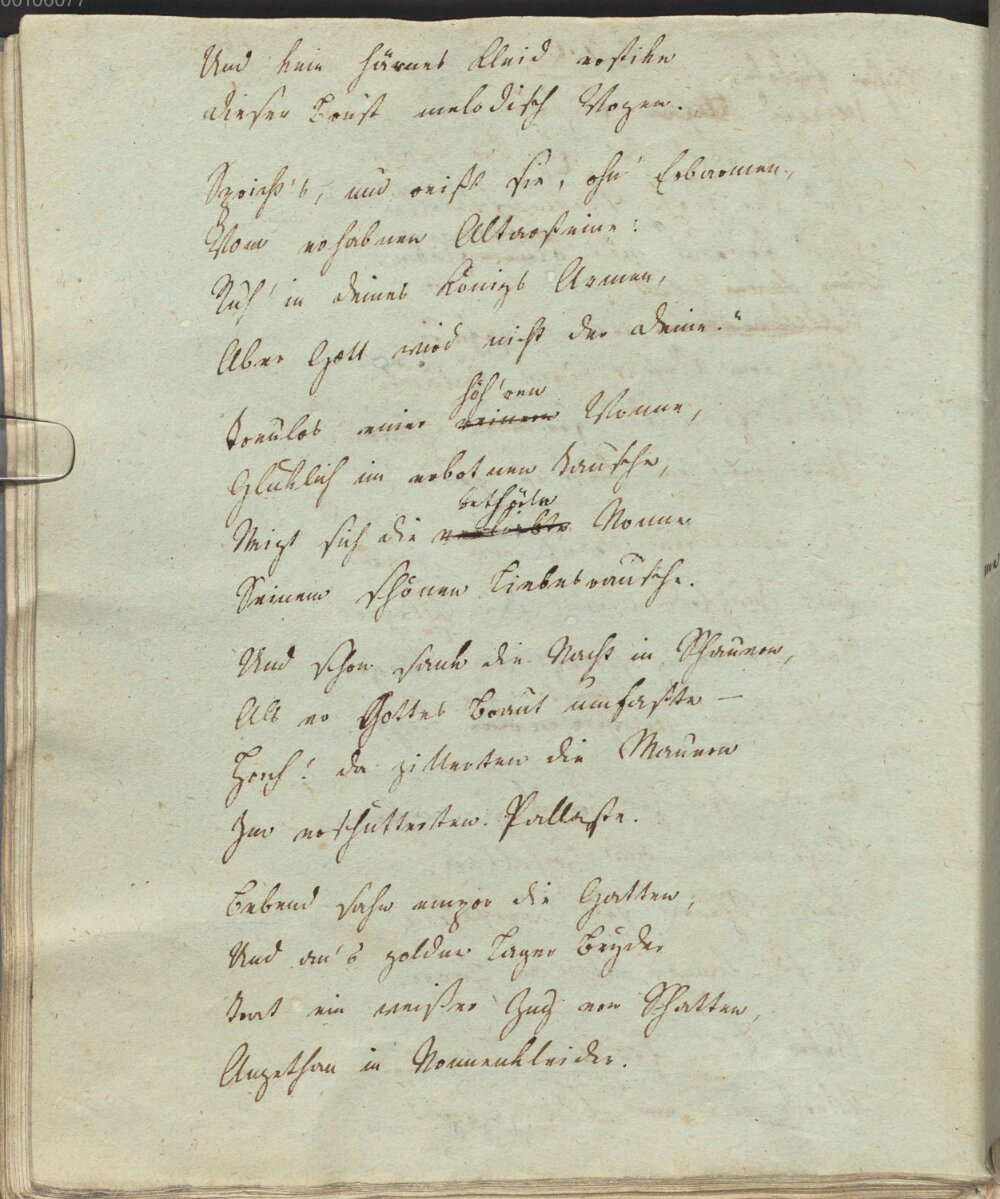 00106077
Und kein härnes Kleid ersticke
Dieser Brust melodisch Wogen.
Sprichts, und reißt sie, ohn' Erbarmen,
Vom erhabnen Altarsteine:
Ruh' in deines Königs Armen,
Aber Gott wird nicht der deine."
höh'ren
Treulos einer reinern Wonne,
Glücklich im verbotnen Tausche,
bethörte
Neigt sich die verliebte Nonne
Seinem schönen Liebesrausche.
Und schon sank die Nacht in Schauern,
Als er Gottes Braut umfaßte —
Horch! da zitterten die Mauern
Im erschütterten Pallaste.
Bebend sahn empor die Gatten,
Und an's goldne Lager Beyder
Trat ein weißer Zug von Schatten,
Angethan in Nonnenkleider.